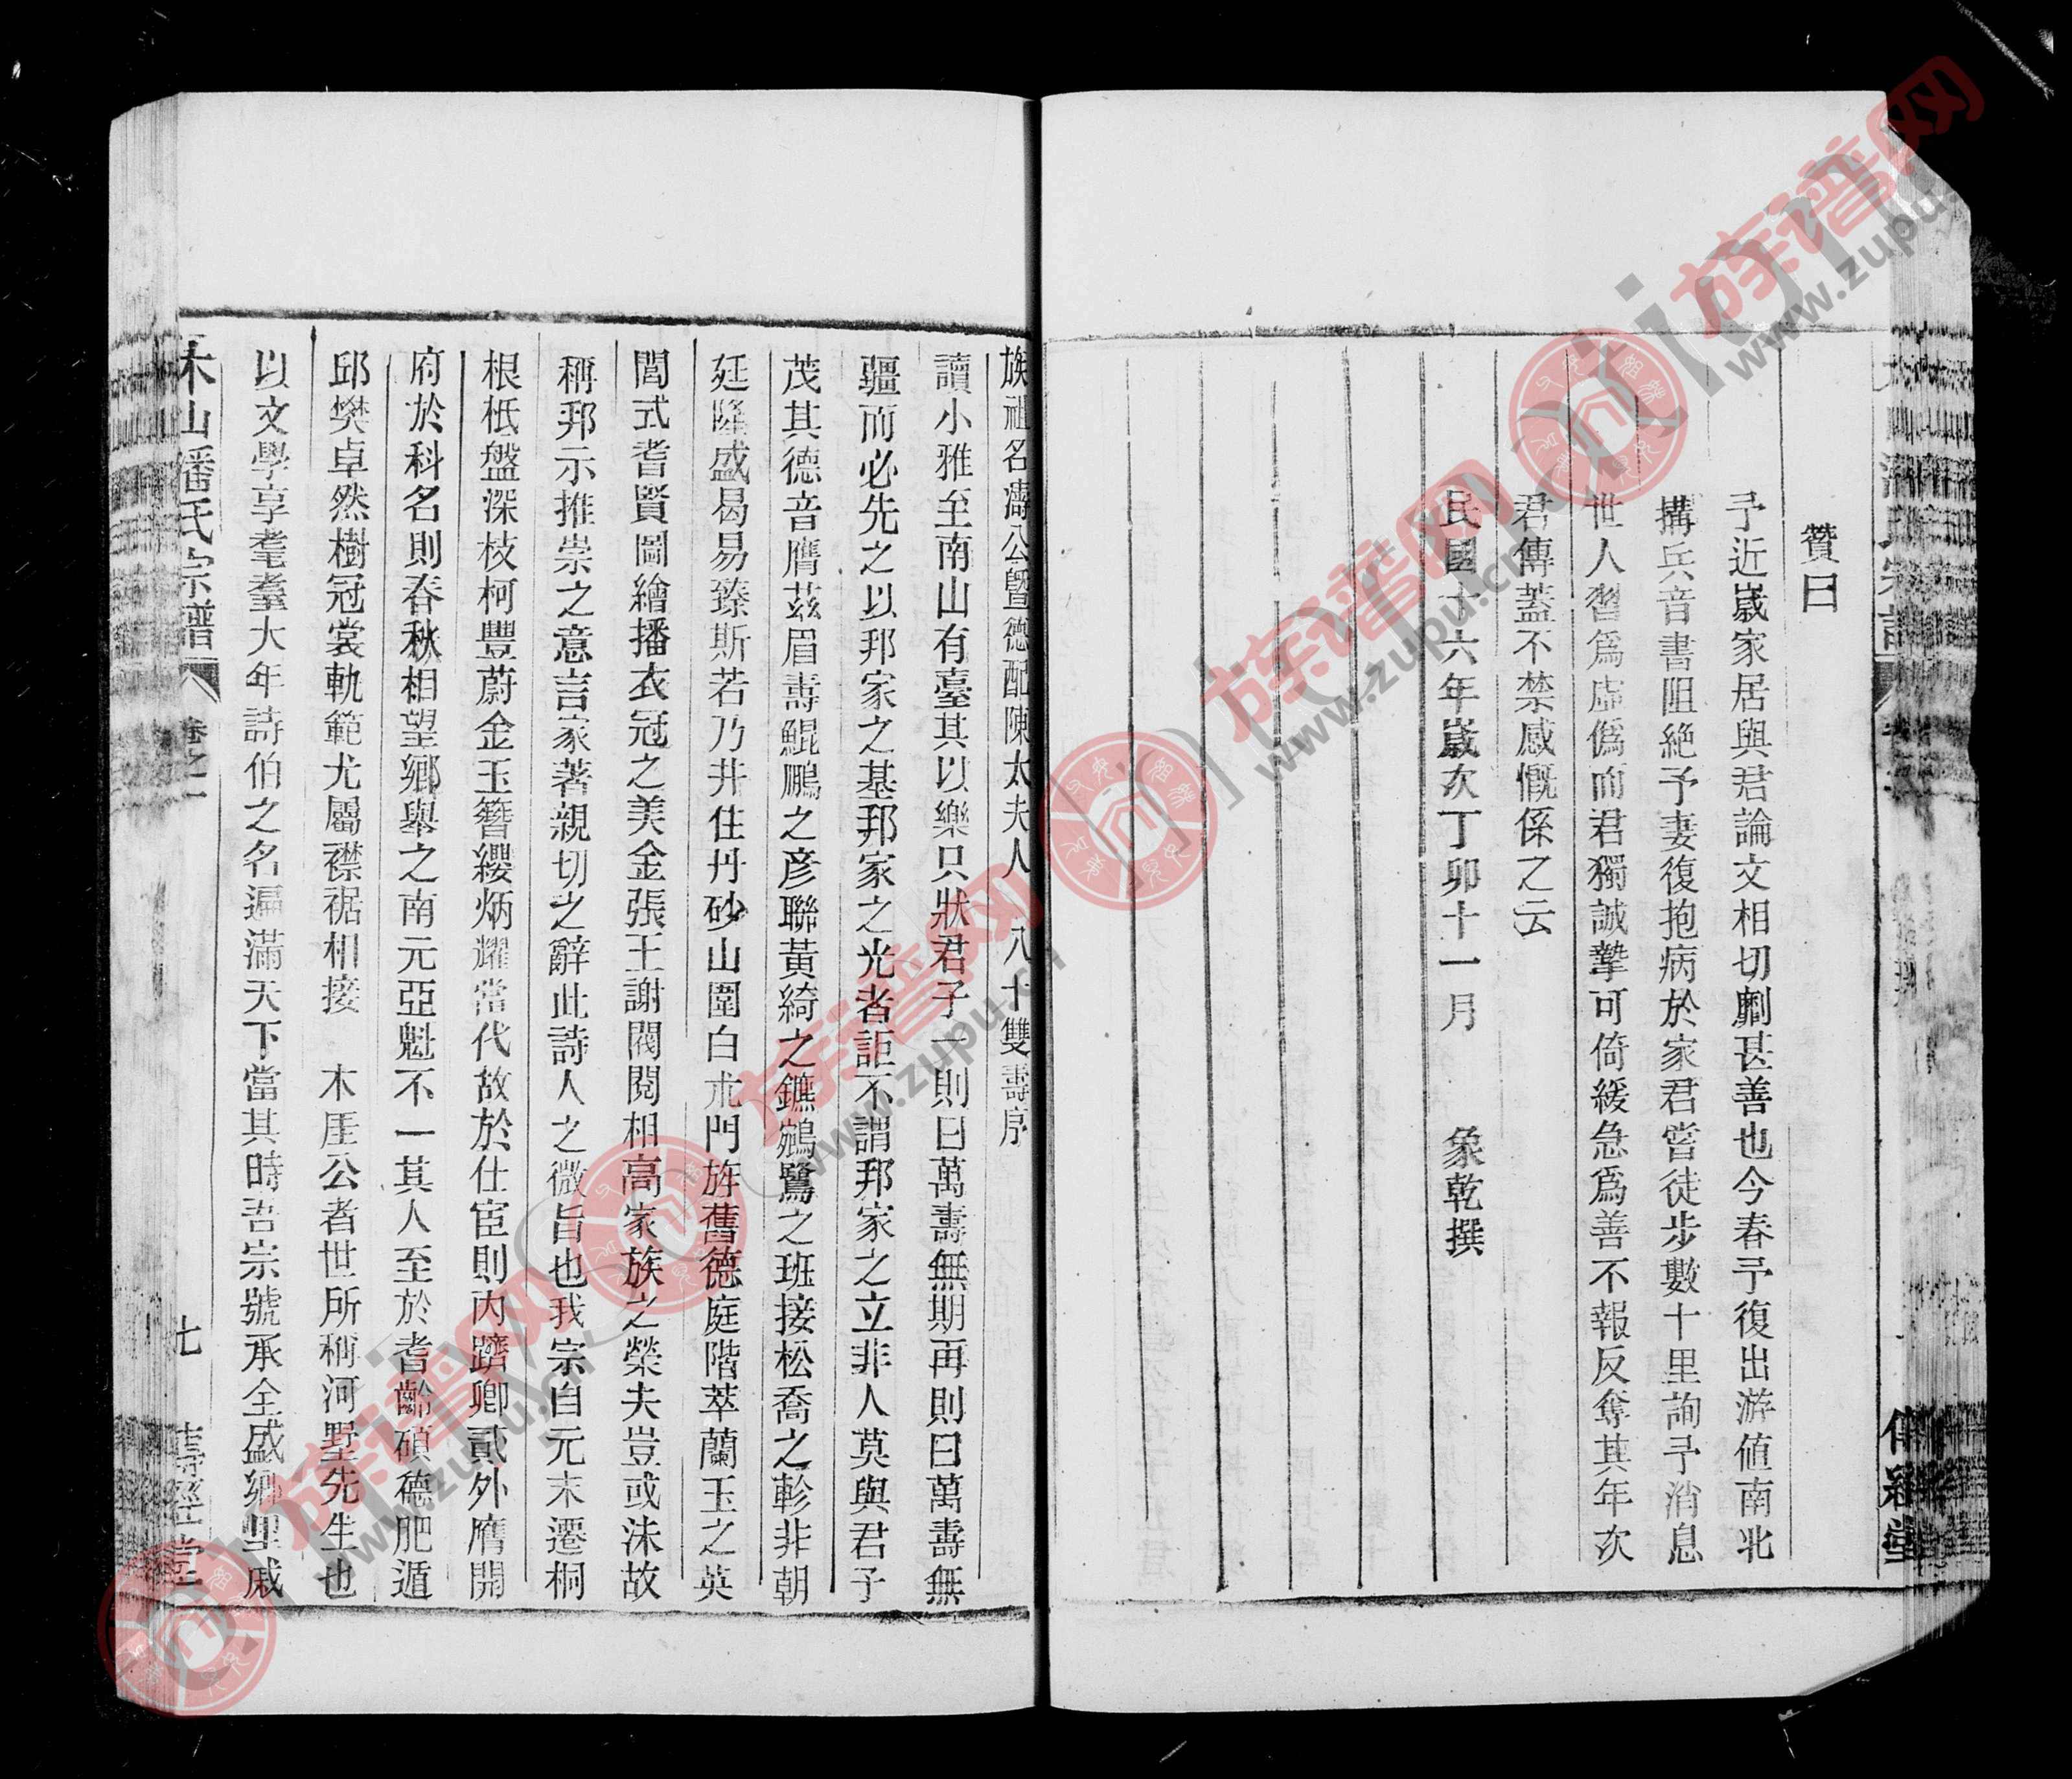 贊曰
予近嵗家居與君論文相切劘甚善也今春予復出游値南北
搆兵音書阻絶予妻復抱病於家君嘗徒步數十里詢予消息
世人習爲虛僞而君獨誠摯可倚緩急爲善不報反奪其年次
君傳蓋不禁感慨係之云
民國十六年嵗次丁卯十一月 象乾撰
族祖名濤公曁德配陳太夫人八十雙壽序
讀小雅至南山有臺其以樂只狀君子一則曰萬壽無期再則曰萬壽無
疆而必先之以邦家之基邦家之光者詎不謂邦家之立非人莫與君子
茂其德音膺茲眉壽鯤鵬之彦聯黃綺之鑣鵷鷺之班接松喬之軫非朝
廷隆盛曷易臻斯若乃井住丹砂山圍白朮門旌舊德庭階萃蘭玉之英
閭式耆賢圖繪播衣冠之美金張王謝閥閱相高家族之榮夫豈或洙故
稱邦示推崇之意言家著親切之辭此詩人之微旨也我宗自元末遷桐
根柢盤深枝柯豐蔚金玉簪纓炳耀當代故於仕宦則內躋卿貳外膺開
府於科名則春秋相望鄉舉之南元亞魁不一其人至於耆齡碩德肥遁
邱樊卓然樹冠裳軌範尤屬襟裾相接 木厓公者世所稱河墅先生也
以文學享耄耋大年詩伯之名遍滿天下當其時吾宗號承全盛鄉里戚
木山潘氏宗譜 卷之一 七
族谱网 www.zupu.cn